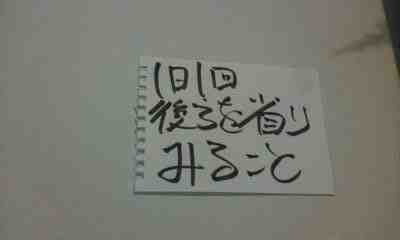 1日1回
後ろを省り
みること